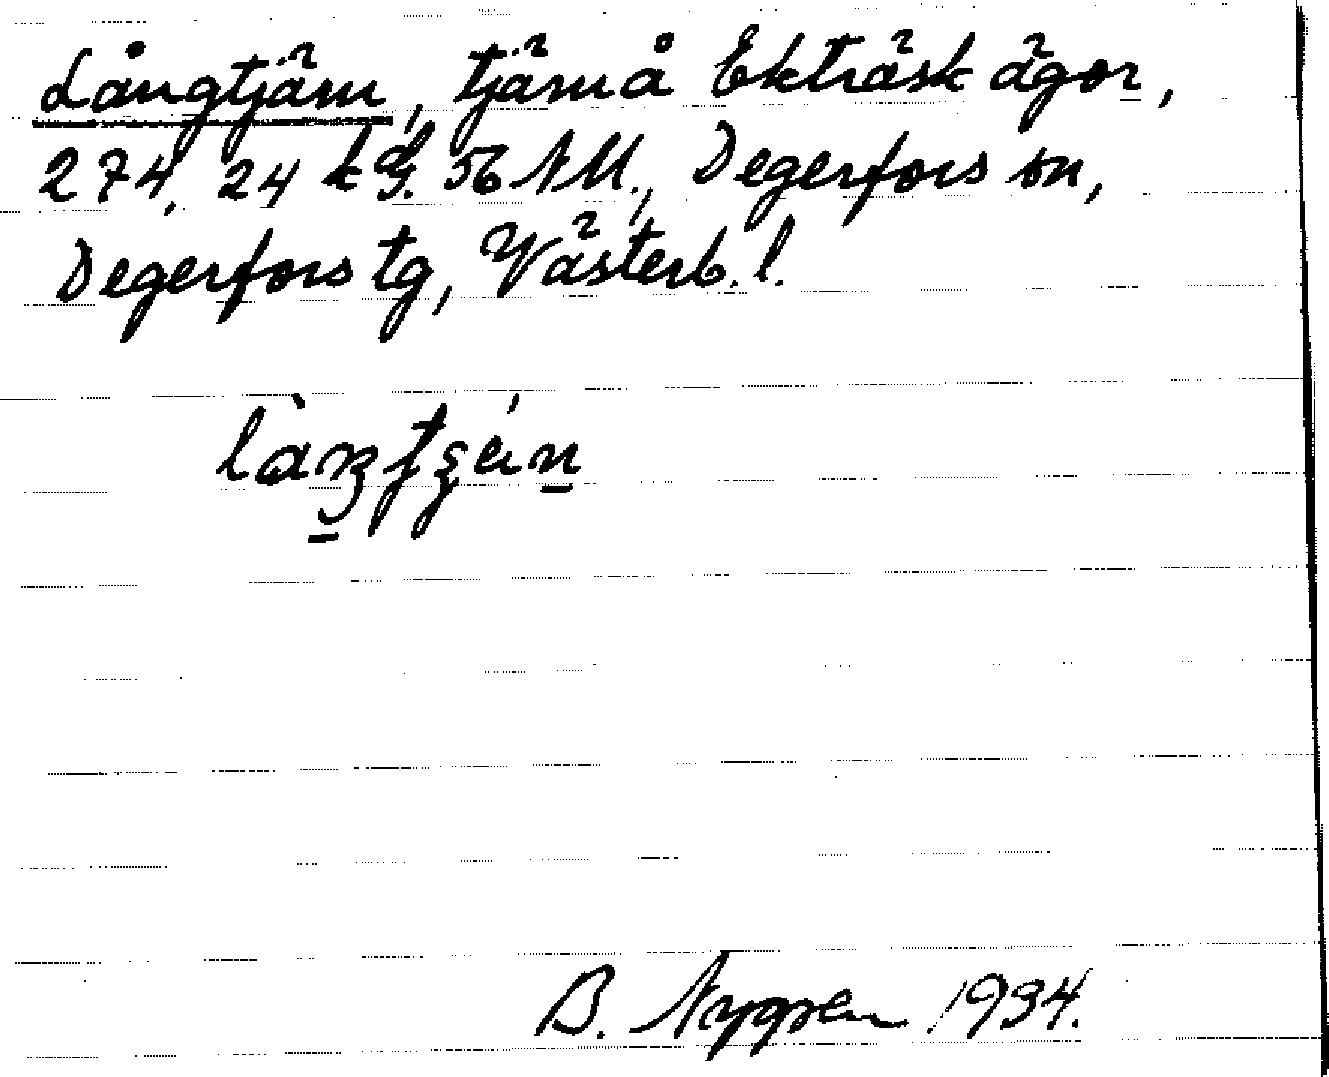 Långtjärn, tjärn å Ekträsk ägor,
274, 24 kd G. 56 NU., Degerfors sn,
Degerfors tg, Västerb. l.
B. Nygren 1934.